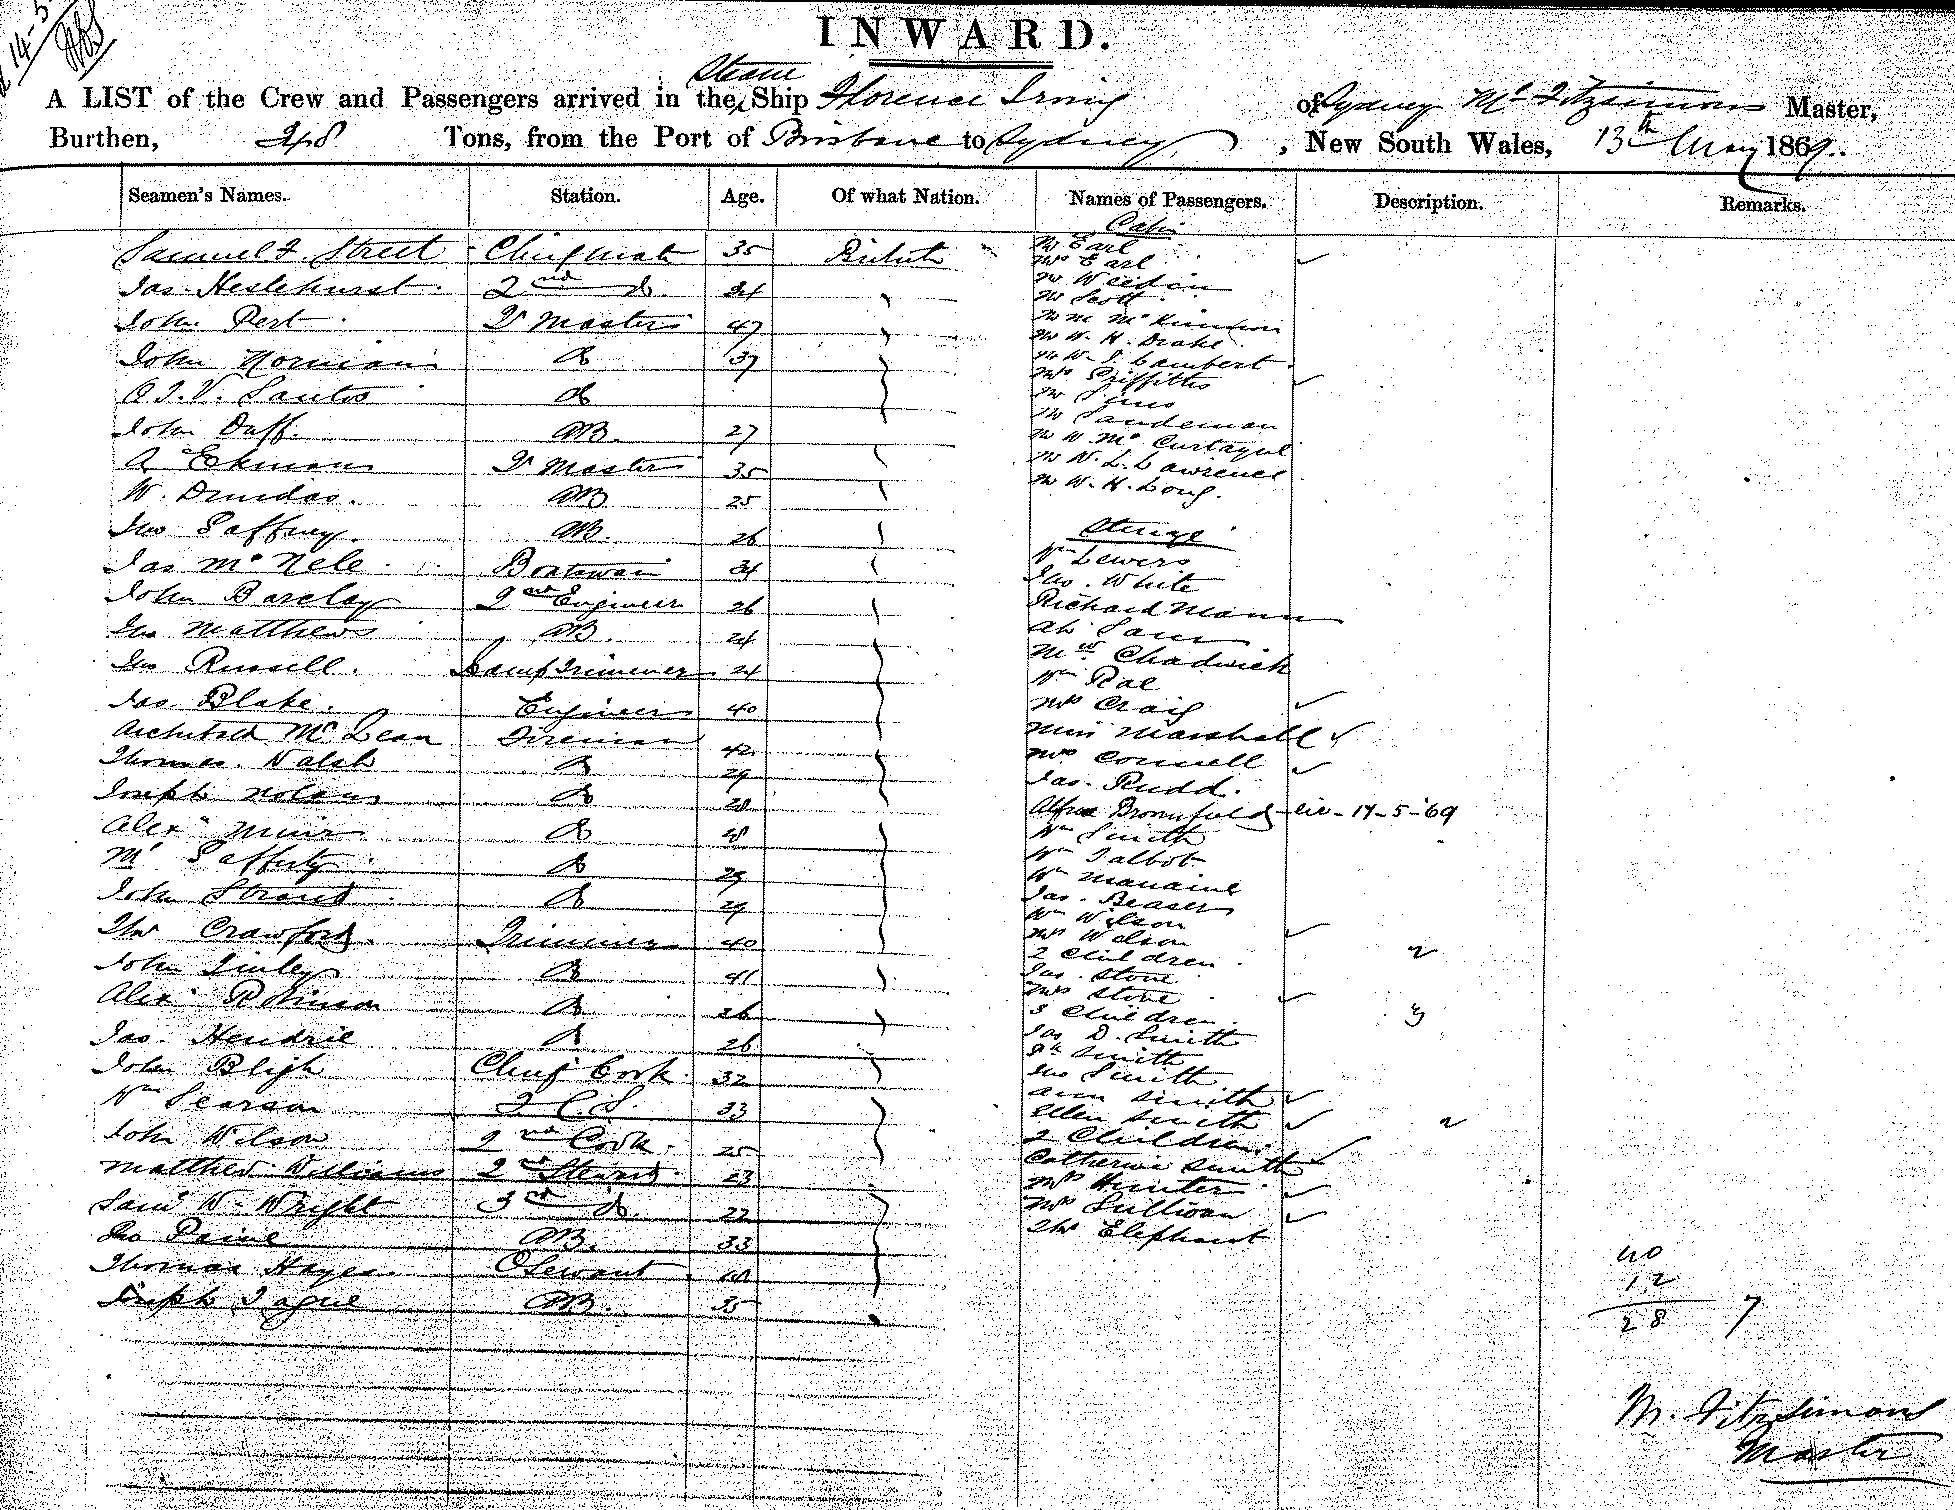 14-5
INWARD.
Steam
A LIST of the Crew and Passengers arrived in the Ship Florence Irving of Sydney Mc Fitzsimons Master,
Burthen, 248 Tons, from the Port of Brisbane to Sydney, New South Wales, 13th May 1869.
Seamen's Names. Station. Age. Of what Nation. Names of Passengers. Description. Remarks.
Cabin
Samuel Street Chief mate 35 British Mr Earl
Mrs Earl
Jas. Heslehurst 2nd do. 24 Mr Weedin
Mr Scott
John Pert Qr Master 47 Mr M McKinnon
Mr W. H. Drake
John Norman do 37 Mr W. J. Lambert
Mrs Griffiths
A. J. V. Santos do Mr Sims
Mr Sandeman
John Duff. AB. 27 Mr W Mc Curtayne
A Ekman Qr Master 35 Mr W. L. Lawrence
W. Dundas. AB 25 Mr W. H. Long.
Jno Gaffney. AB. 26 Steerage
Jas Mc Nele Boatswain 34 Wm Lewers
Jas. White
John Barclay 2nd Engineer 26 Richard Mann
Jno Matthews AB. 24 Ah Sam
Jno Russell. Lamp Trimmer 24 Mrs Chadwick
Wm Rae
Jas. Blake. Engineer 40 Mrs Craig
Archibald McLean Fireman 42 Miss Marshall
Thomas Walsh do 29 Mrs Connell
Joseph Nolan do 28 Jas. Rudd.
Alfred Broomfield 14-5-69
Alexr Muir do 48 Wm Smith
Wm Talbot
Ml Gafferty do 29 Wm
John Strand do 29 Jas.
Wm Wilson
Thos Crawford. Trimmer 40 Mrs Wilson
2 Children 2
John Finley do 41 Jas. Stone
Mrs Stone
Alexr Robinson do 26 3 Children 3
Jas. Hendrie do 26 Jas D. Smith
Smith
John Bligh Chief Cook 32 Jno Smith
Ann Smith
Wm Searson 2 C. S. 33 Ellen Smith
John Wilson 2nd Cook. 25 2 Children 2
Catherine Smith
Matthew Williams 2nd Steward 23 Mrs Hunter
Saml W. Wright 3rd do. 22 Mrs Sullivan
Jno Paine AB. 33 Thos Elephant
Thomas Hayes 40
Joseph Tague AB. 35
40
12
28 7
M. Fitzsimons
Master